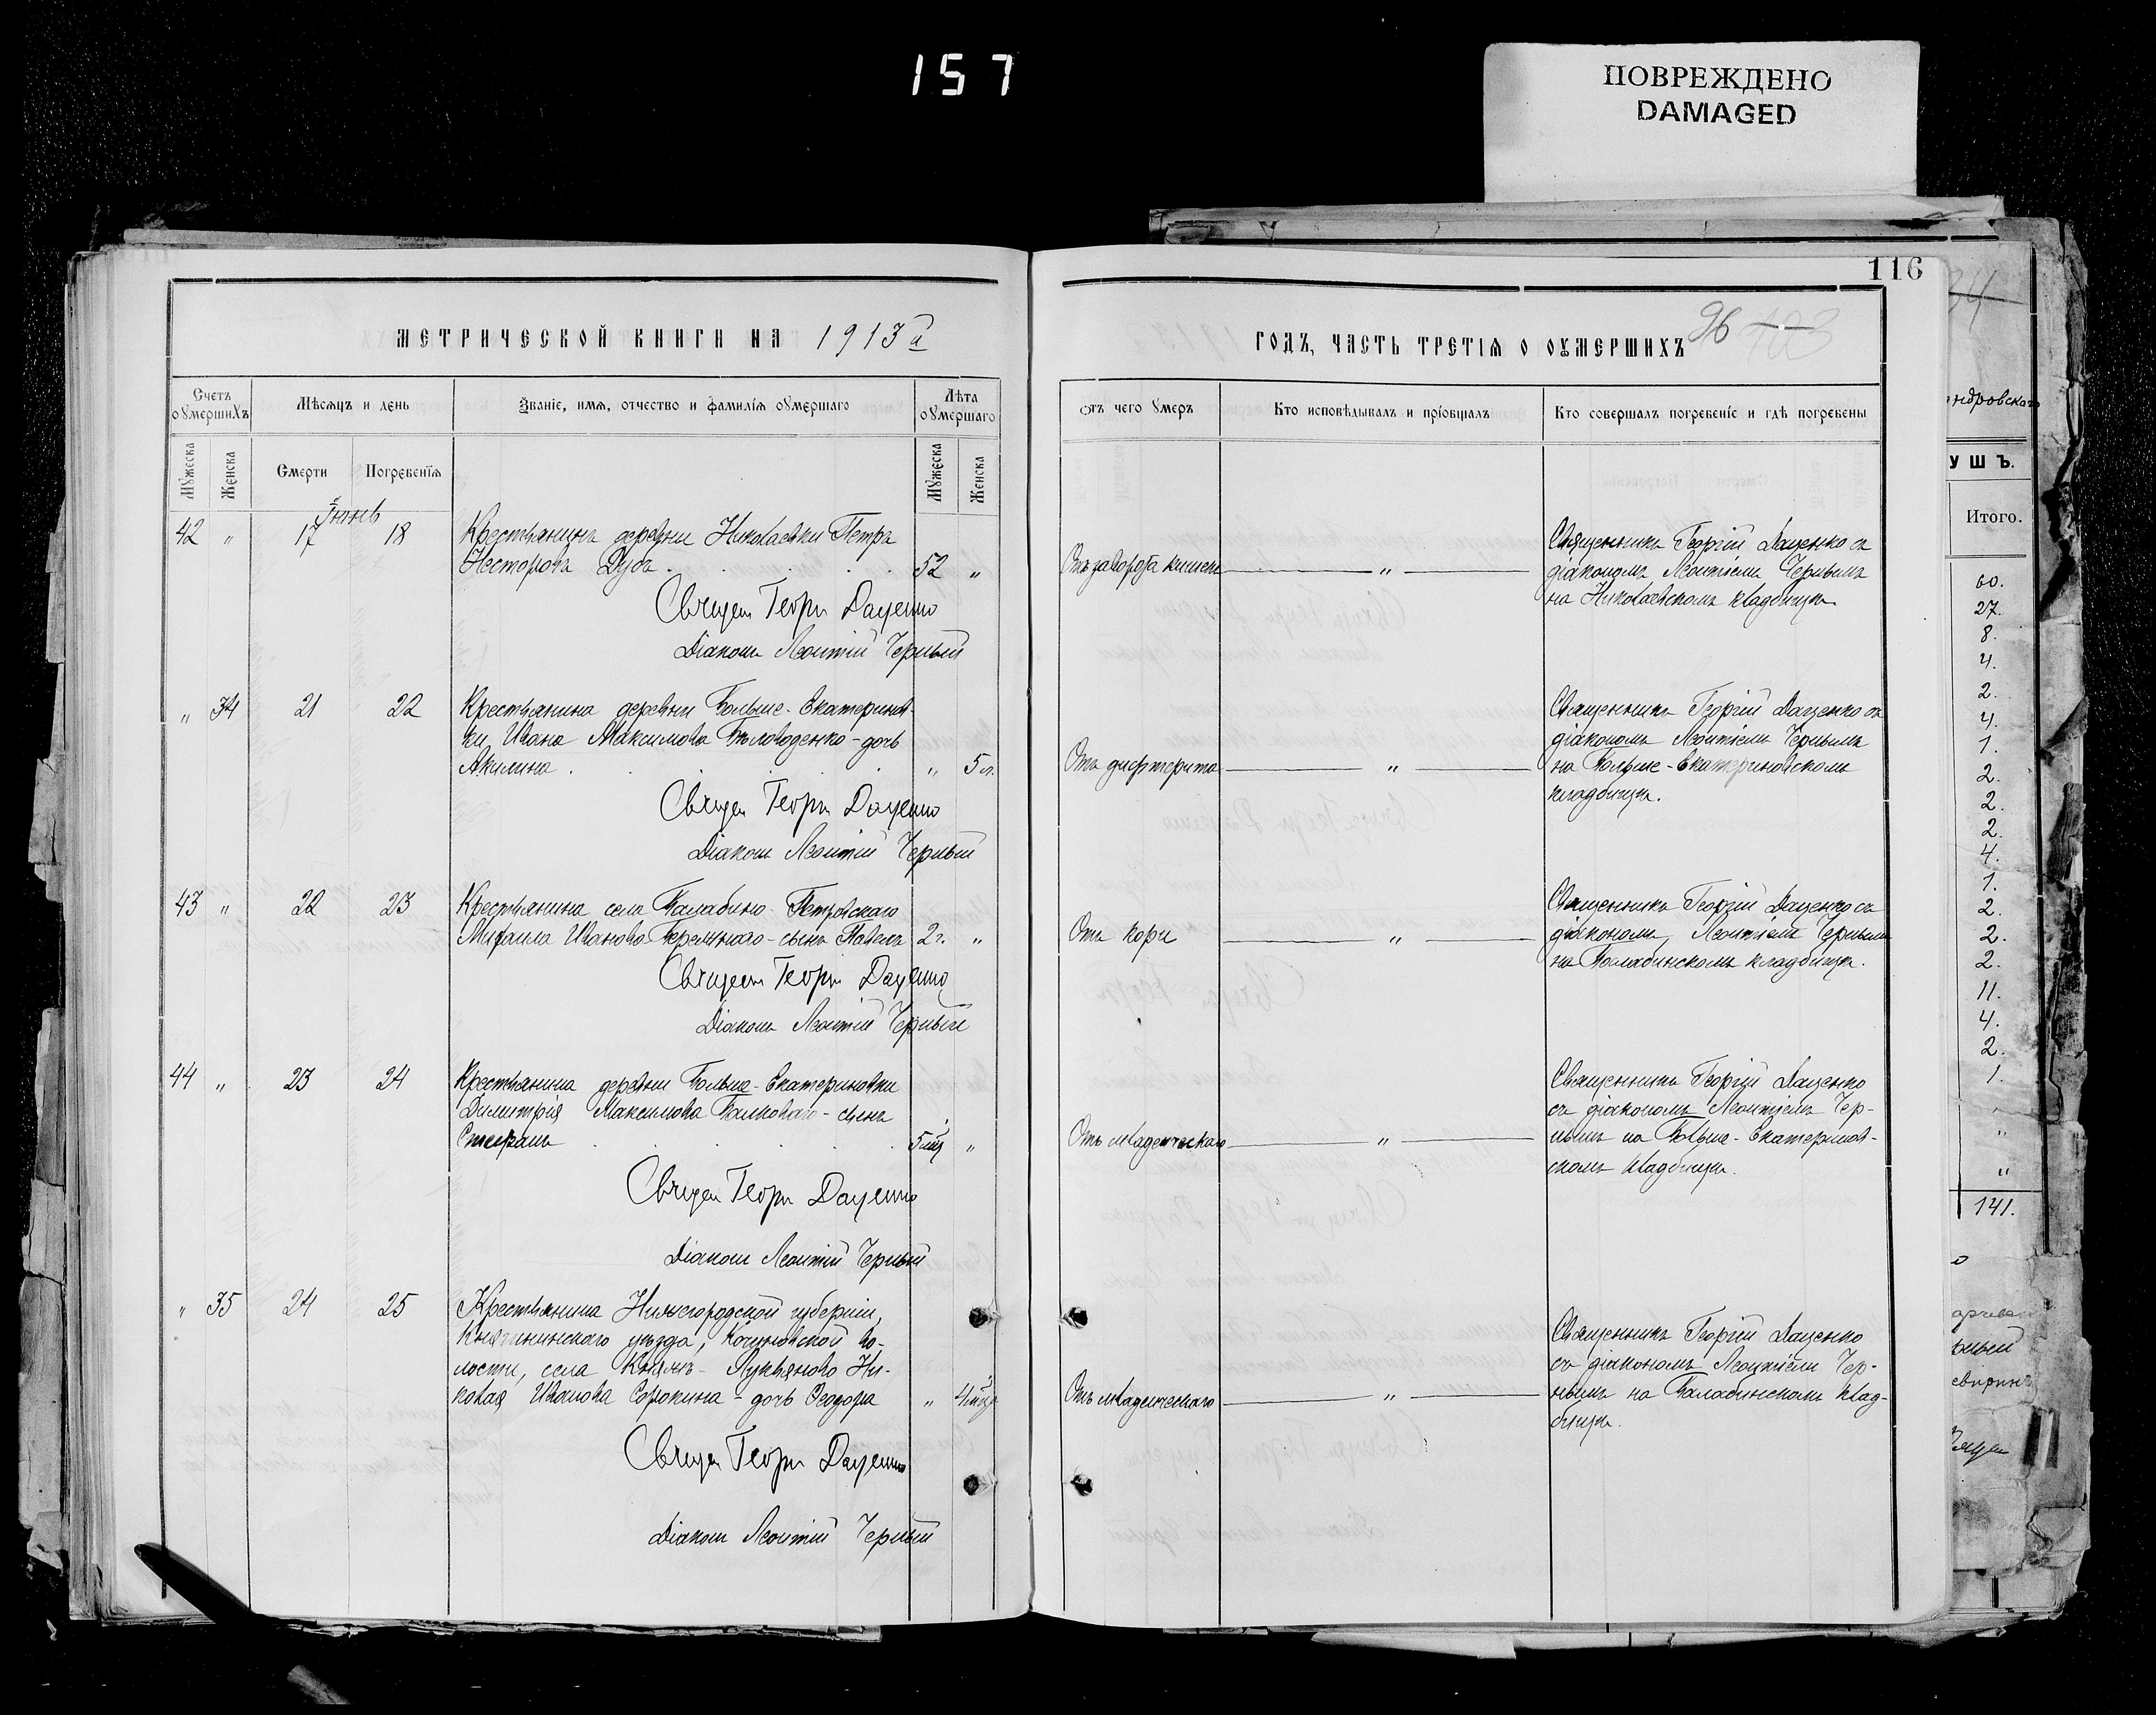 157
ПОВРЕЖДЕНО
DAMAGED
116
МЕТРИЧЕСКОЙ КНИГИ НА 1913й
Счетъ оумершихъ
Мѣсяцъ и день
Званіе, имя, отчество и фамилія оумершаго
Лѣта оумершаго
Мужеска
Женска
Смерти
Погребенія
Мужеска
Женска
Іюнь
42 " 17 18 Крестьянинъ деревни Николаевки Петръ
Несторовъ Дубъ . . . . 52 "
Священ Георгій Даценко
Діаконъ Леонтій Черный
" 34 21 22 Крестьянина деревни Больше-Екатеринов-
ки Ивана Максимова Бѣловоденко - дочь
Акилина . . . . " 5 л.
Священ Георгій Даценко
Діаконъ Леонтій Черный
43 " 22 23 Крестьянина села Балабино-Петровскаго
Михаила Иванова - сынъ Павелъ 2 г. "
Священ Георгій Даценко
Діаконъ Леонтій Черный
44 " 23 24 Крестьянина деревни Больше-Екатериновки
Димитрія Максимова Балковаго - сынъ
Стефанъ . . . . 5 мц "
Священ Георгій Даценко
Діаконъ Леонтій Черный
" 35 24 25 Крестьянина Нижегородской губерніи,
Княгининскаго уѣзда, во-
лости, села Лукьяново Ни-
колая Иванова Сорокина - дочь Ѳеодора " 4 мц
Священ Георгій Даценко
Діаконъ Леонтій Черный
ГОДЪ, ЧАСТЬ ТРЕТІЯ О ОУМЕРШИХЪ 96 103
отъ чего умеръ
Кто исповѣдывалъ и пріобщалъ
Кто совершалъ погребеніе и гдѣ погребены
Отъ заворота кишекъ " Священникъ Георгій Даценко съ
діакономъ Леонтіемъ Чернымъ
на Николаевскомъ кладбищѣ.
Отъ дифтерита " Священникъ Георгій Даценко съ
діакономъ Леонтіемъ Чернымъ
на Больше-Екатериновскомъ
кладбищѣ.
Отъ кори " Священникъ Георгій Даценко съ
діакономъ Леонтіемъ Чернымъ
на Балабинскомъ кладбищѣ.
Отъ младенческаго " Священникъ Георгій Даценко
съ діакономъ Леонтіемъ Чер-
нымъ на Больше-Екатеринов-
скомъ кладбищѣ.
Отъ младенческаго " Священникъ Георгій Даценко
съ діакономъ Леонтіемъ Чер-
нымъ на Балабинскомъ клад-
бищѣ.
ндровскаго
УШЪ.
Итого.
60.
27.
8.
4.
2.
4.
1.
2.
2.
2.
4.
1.
2.
2.
2.
11.
4.
2.
1.
"
"
"
141.